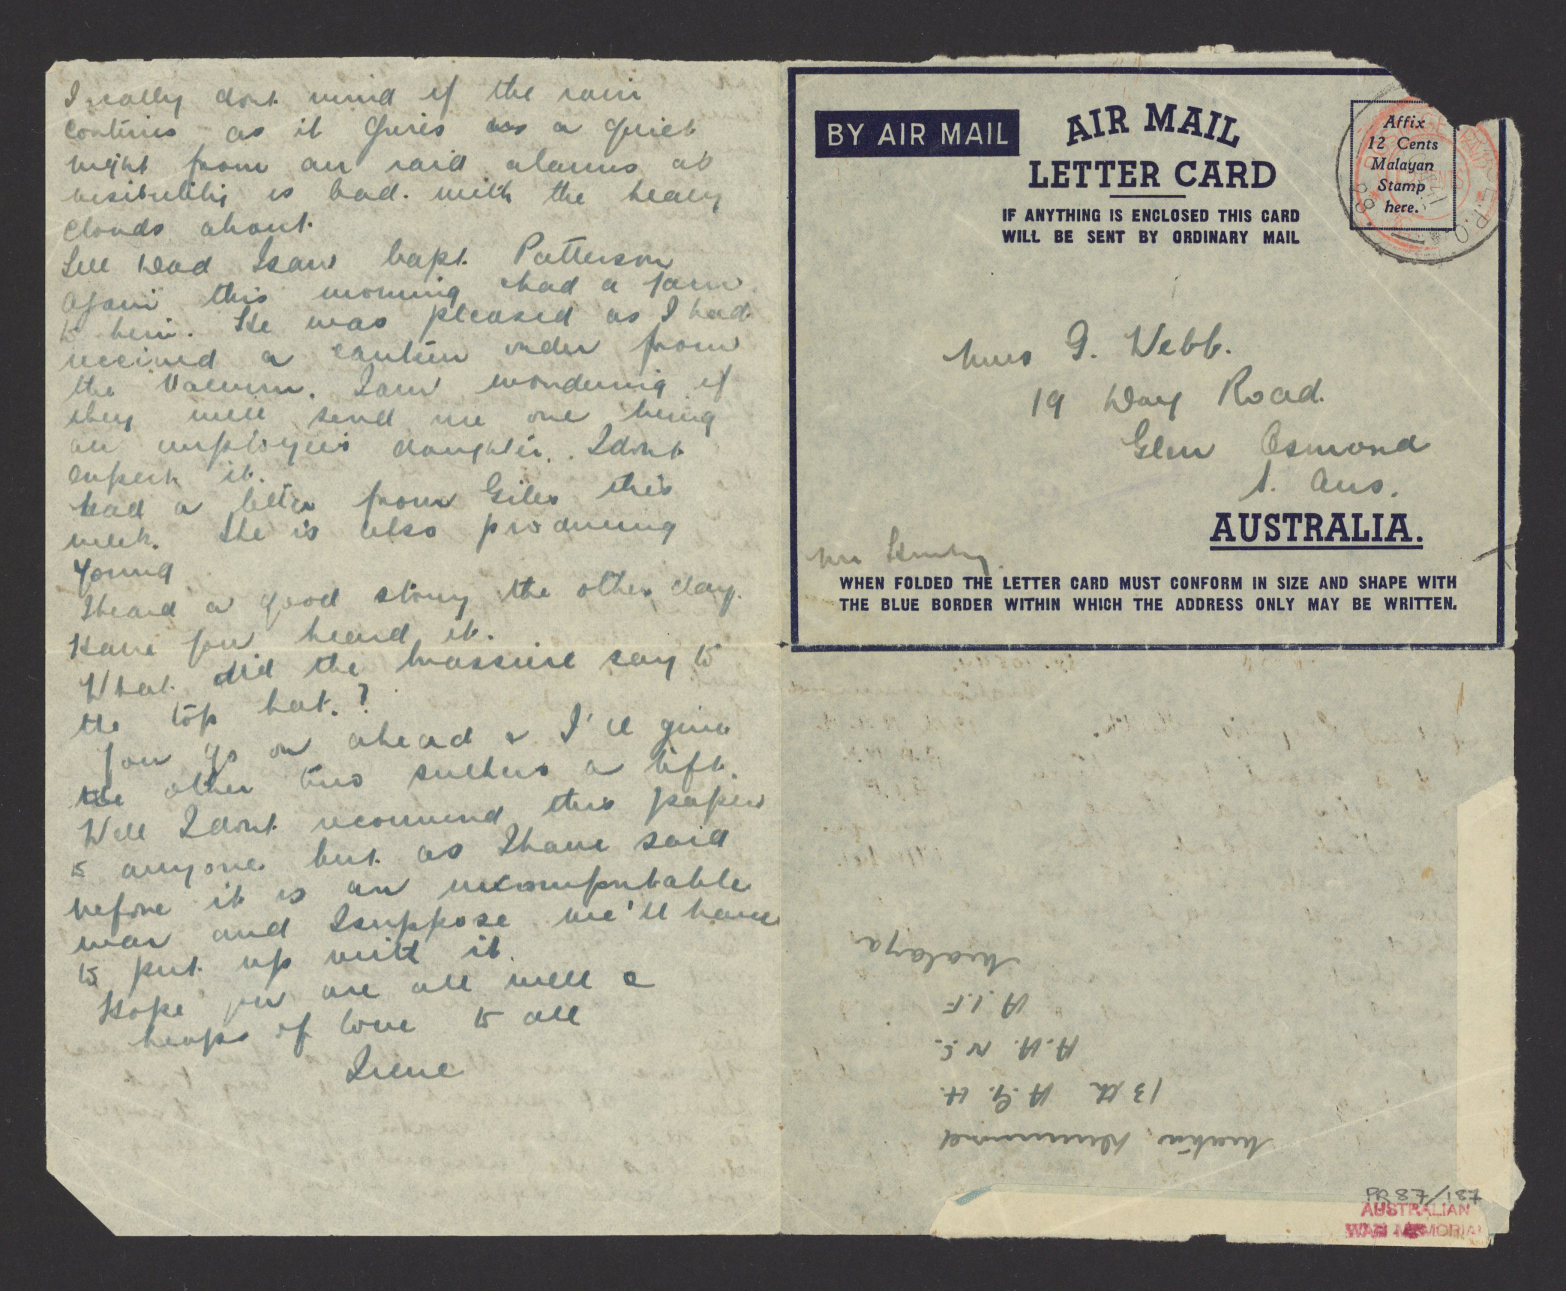 I really dont mind if the rain
continues as it gives us a quiet
night from air raid alarms as
visibility is bad. with the heavy
clouds about.
Tell Dad I saw Capt. Patterson
again this morning & had a yarn
to him. He was pleased as I had
received a canteen order from
the Vacuum. I am wondering if
they will send me one being
an employee's daughter. I dont
expect it.
Had a letter from Giles this
week. She is also producing
young
I heard a good story the other day.
Have you heard it.
What did the brassiere say to
the top hat.?
You go on ahead & I'll give
the other two suckers a lift.
Well I dont recommend this paper
to anyone but as I have said
before it is an uncomfortable
war and I suppose we'll have
to put up with it.
Hope you are all well &
heaps of love to all
Irene
BY AIR MAIL
AIR MAIL
LETTER CARD
IF ANYTHING IS ENCLOSED THIS CARD
WILL BE SENT BY ORDINARY MAIL
Affix
12 Cents
Malayan
Stamp
here.
Mrs G. Webb.
19 Day Road.
Glen Osmond
S. Aus.
AUSTRALIA.
WHEN FOLDED THE LETTER CARD MUST CONFORM IN SIZE AND SHAPE WITH
THE BLUE BORDER WITHIN WHICH THE ADDRESS ONLY MAY BE WRITTEN.
Matron Drummond
13th A.G.H.
A.A.N.S.
A.I.F
Malaya
PR87/187
AUSTRALIAN
WAR MEMORIAL